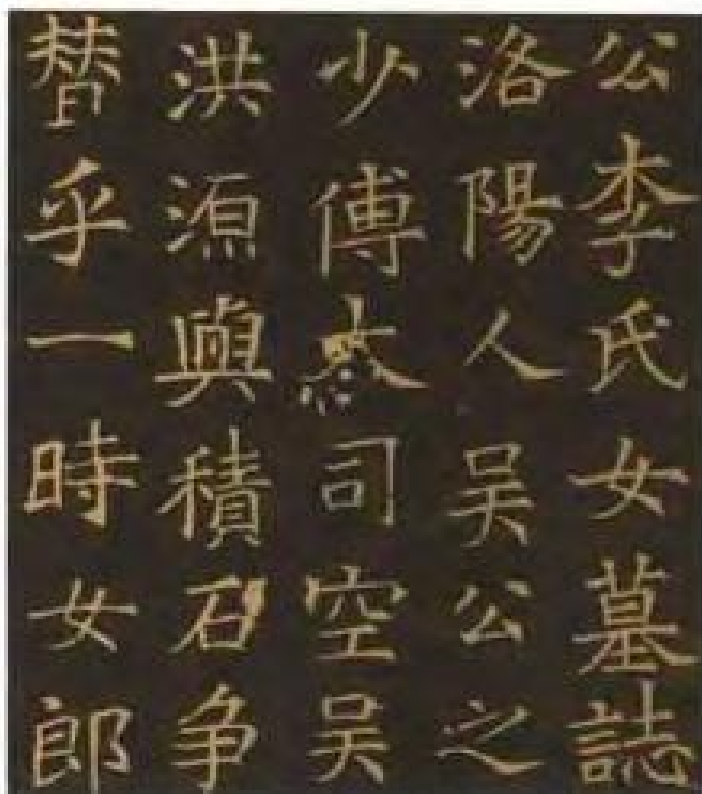 公李氏女墓誌
洛陽人吴公之
少傅大司空吴
洪源與積石争
替乎一時女郎